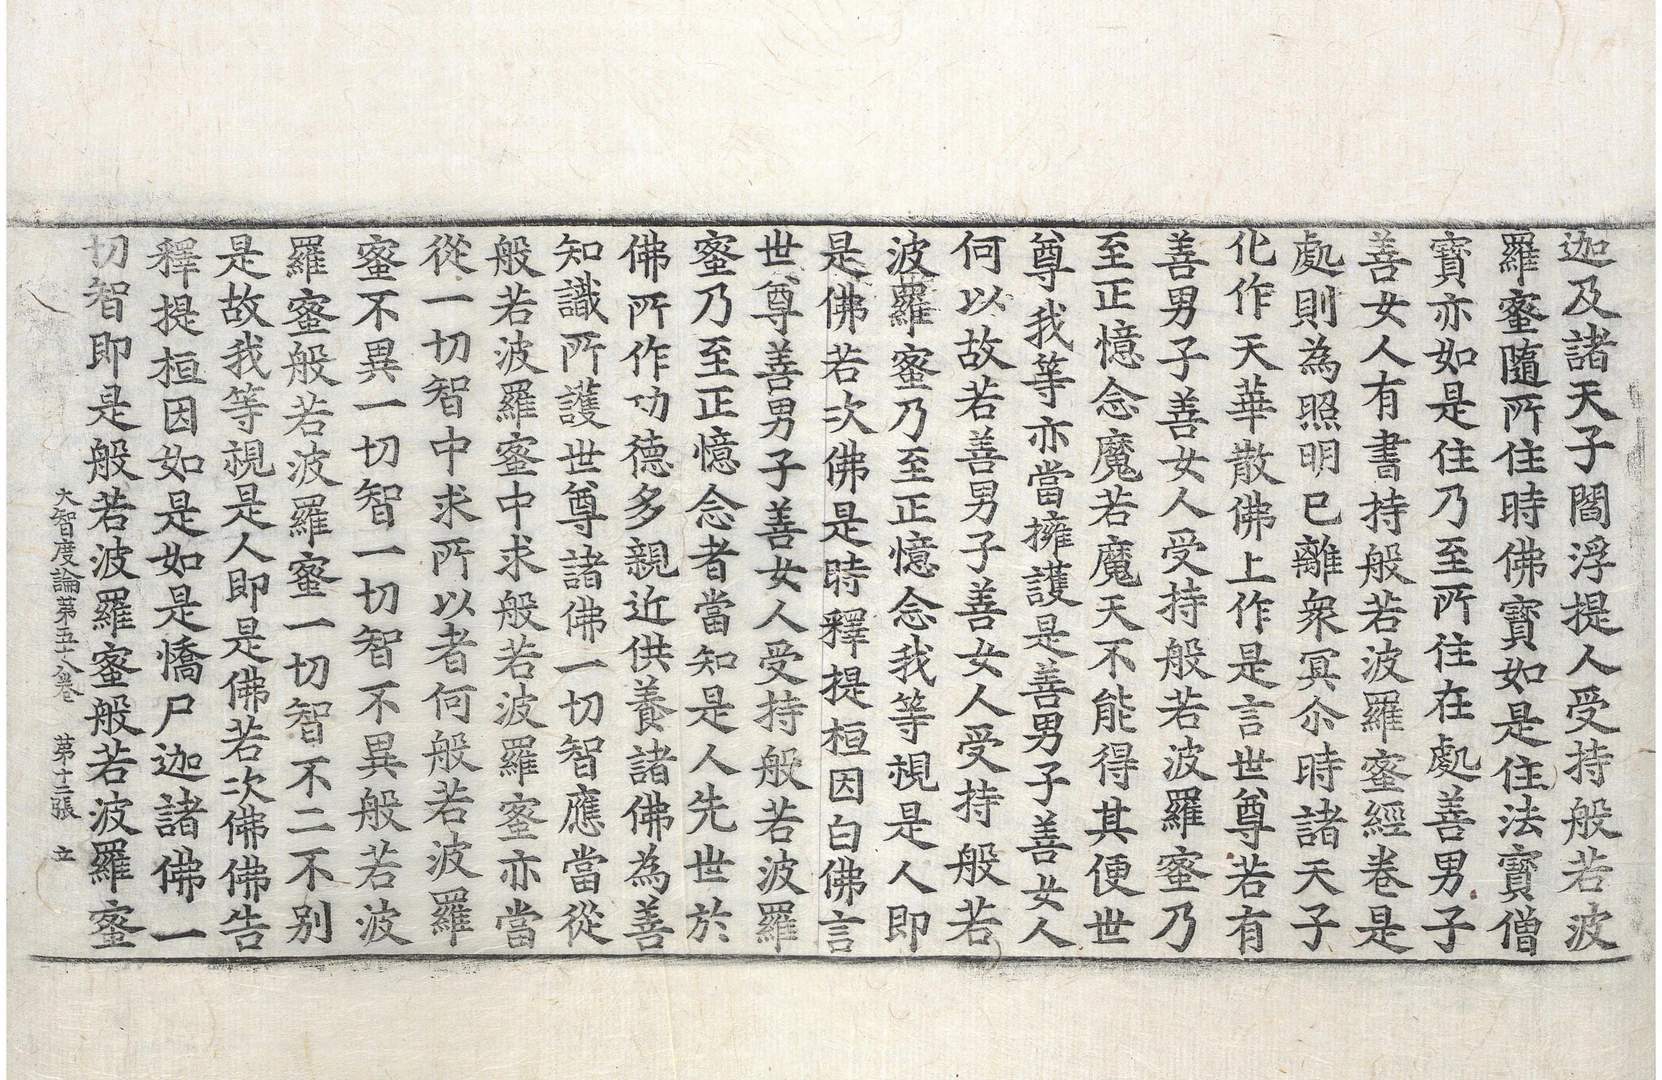 迦及諸天子閻浮提人受持般若波
羅蜜隨所住時佛寶如是住法寶僧
寶亦如是住乃至所住在處善男子
善女人有書持般若波羅蜜經卷是
處則為照明已離衆冥尒時諸天子
化作天華散佛上作是言世尊若有
善男子善女人受持般若波羅蜜乃
至正憶念魔若魔天不能得其便世
尊我等亦當擁護是善男子善女人
何以故若善男子善女人受持般若
波羅蜜乃至正憶念我等視是人即
是佛若次佛是時釋提桓因白佛言
世尊善男子善女人受持般若波羅
蜜乃至正憶念者當知是人先世於
佛所作功德多親近供養諸佛為善
知識所護世尊諸佛一切智應當從
般若波羅蜜中求般若波羅蜜亦當
從一切智中求所以者何般若波羅
蜜不異一切智一切智不異般若波
羅蜜般若波羅蜜一切智不二不別
是故我等視是人即是佛若次佛佛告
釋提桓因如是如是憍尸迦諸佛一
切智即是般若波羅蜜般若波羅蜜
大智度論第五十八卷 第十二張 立